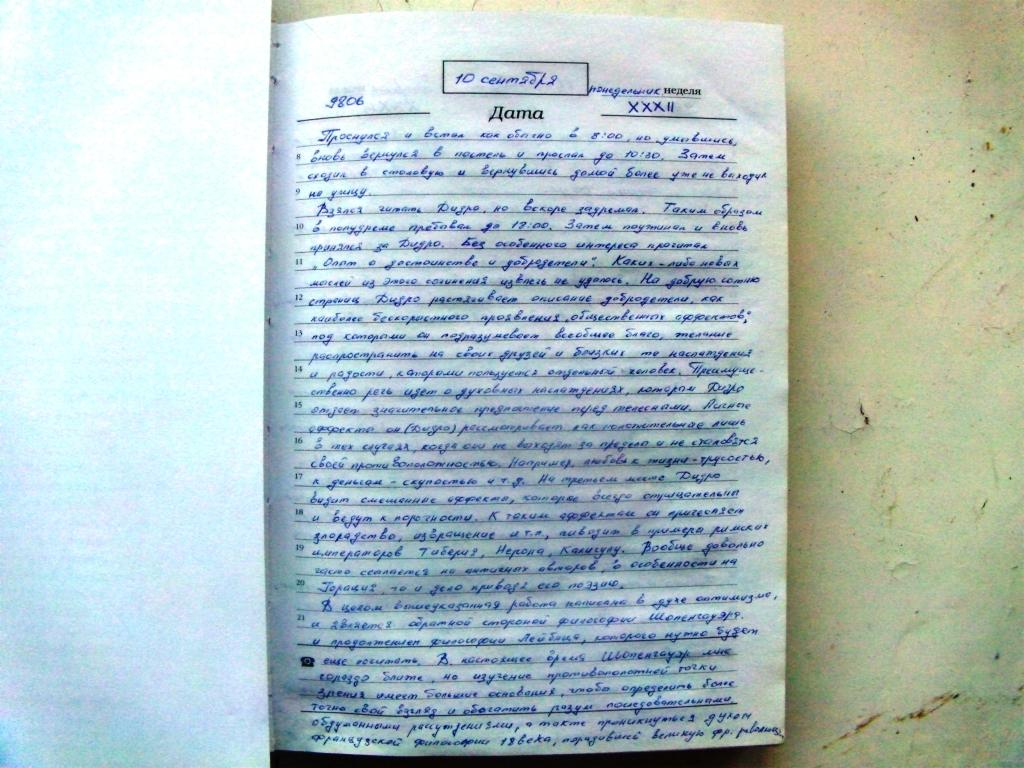 10 сентября
понедельник неделя
9806
Дата
XXXII
Проснулся и встал как обычно в 8:00, но умывшись,
8 вновь вернулся в постель и проспал до 10:30. Затем
сходил в столовую и вернувшись домой более уже не выходил
9 на улицу.
Взялся читать Дидро, но вскоре задремал. Таким образом
10 в полудреме пребывал до 18:00. Затем поужинал и вновь
принялся за Дидро. Без особенного интереса прочитал
11 „Опыт о достоинстве и добродетели". Каких-либо новых
мыслей из этого сочинения извлечь не удалось. На добрую сотню
12 страниц Дидро растягивает описание добродетели, как
наиболее бескорыстного проявления „общественных аффектов",
13 под которыми он подразумевает всеобщее благо, желание
распространить на своих друзей и близких те наслаждения
14 и радости, которыми пользуется отдельный человек. Преимуще-
ственно речь идет о духовных наслаждениях, которым Дидро
15 отдает значительное предпочтение перед телесными. Личные
аффекты он (Дидро) рассматривает как положительные лишь
16 в тех случаях, когда они не выходят за пределы и не становятся
своей противоположностью. Например, любовь к жизни - трусостью,
17 к деньгам - скупостью и т.д. На третьем месте Дидро
видит смешанные аффекты, которые всегда отрицательны
18 и ведут к порочности. К таким аффектам он причисляет
злорадство, извращение и т.п., приводит в примеры римских
19 императоров Тиберия, Нерона, Калигулу. Вообще довольно
часто ссылается на античных авторов, в особенности на
20 Горация, то и дело приводя его поэзию.
В целом вышеуказанная работа написана в духе оптимизма,
21 и является обратной стороной философии Шопенгауэра
и продолжением философии Лейбница, которого нужно будет
еще почитать. В настоящее время Шопенгауэр мне
гораздо ближе, но изучение противоположной точки
зрения имеет большие основания, чтобы определить более
точно свой взгляд и обогатить разум последовательными,
обдуманными рассуждениями, а также проникнуться духом
французской философии 18 века, породившей великую фр. революц.